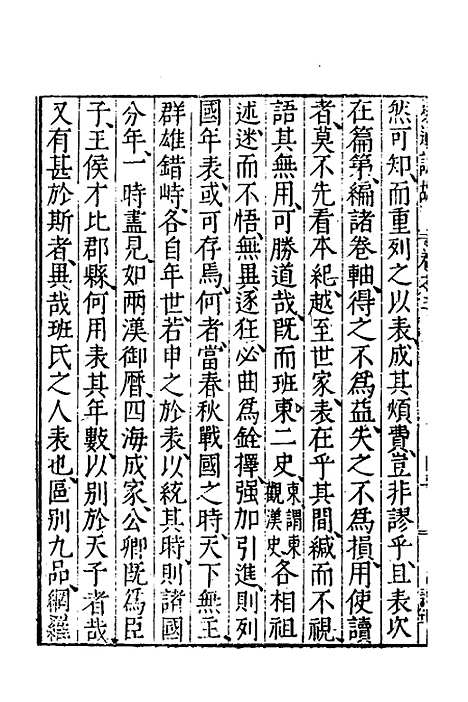 然可知、而重列之以表、成其煩費、豈非謬乎、且表次
在篇第、編諸卷軸、得之不爲益、失之不爲損、用使讀
者、莫不先看本紀、越至世家、表在乎其間、緘而不視、
語其無用、可勝道哉、既而班東二史、東謂東觀漢史、各相祖
述、迷而不悟、無異逐狂、必曲爲銓擇、强加引進、則列
國年表、或可存焉、何者、當春秋戰國之時、天下無主、
群雄錯峙、各自年世、若申之於表、以統其時、則諸國
分年、一時盡見、如兩漢御曆、四海成家、公卿既爲臣
子、王侯才比郡縣、何用表其年數、以别於天子者哉、
又有甚於斯者、異哉班氏之人表也、區别九品、網羅